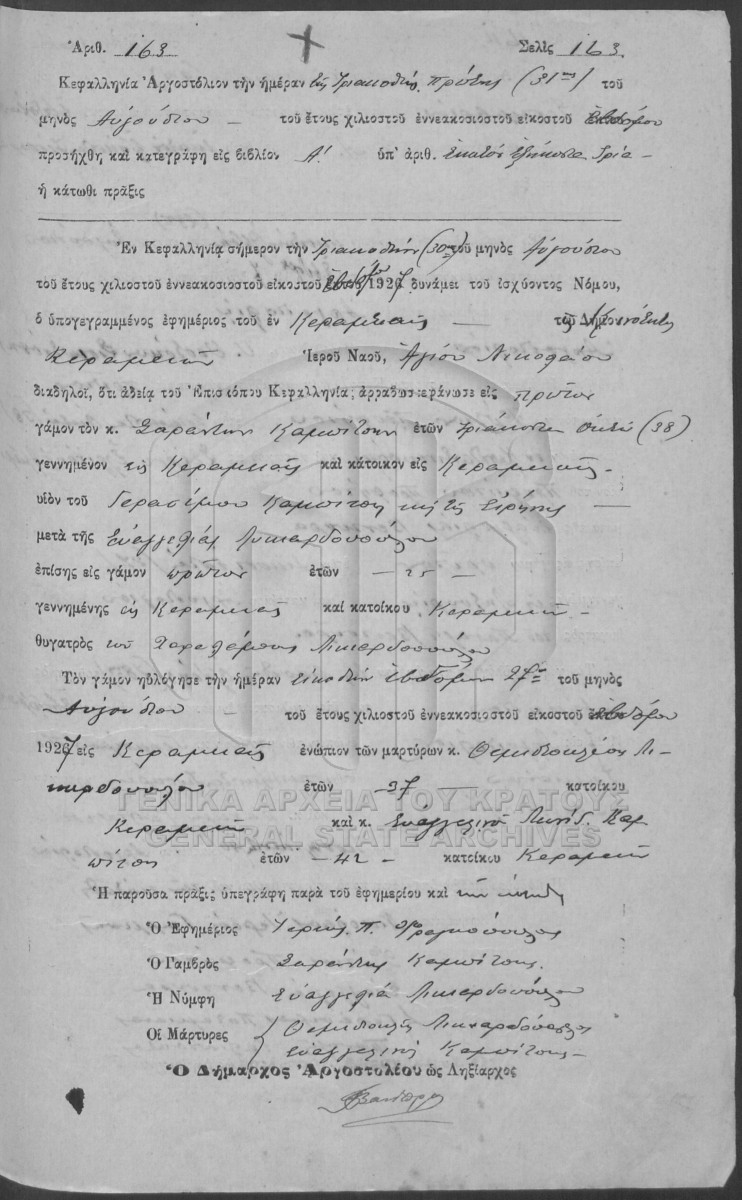 Ἀριθ. 163 Σελὶς 163
Κεφαλληνία Ἀργοστόλιον τὴν ἡμέραν τὴν Τριακοστὴν πρώτην (31ην) τοῦ
μηνὸς Αὐγούστου – τοῦ ἔτους χιλιοστοῦ ἐννεακοσιοστοῦ εἰκοστοῦ ἑβδόμου
προσήχθη καὶ κατεγράφη εἰς βιβλίον Α' ὑπ' ἀριθ. ἑκατὸν ἑξήκοντα τρία –
ἡ κάτωθι πρᾶξις
Ἐν Κεφαλληνίᾳ σήμερον τὴν Τριακοστὴν (30) τοῦ μηνὸς Αὐγούστου
τοῦ ἔτους χιλιοστοῦ ἐννεακοσιοστοῦ εἰκοστοῦ ἑβδόμου 1927 δυνάμει τοῦ ἰσχύοντος Νόμου,
ὁ ὑπογεγραμμένος ἐφημέριος τοῦ ἐν Κεραμειαῖς – Κοινότητος
Κεραμειῶν Ἱεροῦ Ναοῦ, Ἁγίου Νικολάου
διαδηλοῖ, ὅτι ἀδείᾳ τοῦ Ἐπισκόπου Κεφαλληνίας ἀρραβωνιεράνωσε εἰς πρῶτον
γάμον τὸν κ. Σαράντην Καμπίτσην ἐτῶν τριάκοντα ὀκτώ (38)
γεννημένον εἰς Κεραμειαῖς καὶ κάτοικον εἰς Κεραμειαῖς –
υἱὸν τοῦ Γερασίμου Καμπίτση καὶ τῆς Εἰρήνης –
μετὰ τῆς Εὐαγγελίας Λυκαρδοπούλου
ἐπίσης εἰς γάμον πρῶτον ἐτῶν – 25 –
γεννημένης εἰς Κεραμειαῖς καί κατοίκου Κεραμειῶν –
θυγατρὸς τοῦ Χαραλάμπους Λυκαρδοπούλου
Τὸν γάμον ηὐλόγησε τὴν ἡμέραν εἰκοστὴν ἑβδόμην 27ην τοῦ μηνὸς
Αὐγούστου – τοῦ ἔτους χιλιοστοῦ ἐννεακοσιοστοῦ εἰκοστοῦ ἑβδόμου
1927 εἰς Κεραμειαῖς ἐνώπιον τῶν μαρτύρων κ. Θεμιστοκλέους Λυ-
καρδοπούλου ἐτῶν – 37 – κατοίκου
Κεραμειῶν καὶ κ. Εὐαγγελινοῦ Καμ
πίτση ἐτῶν – 42 – κατοίκου Κεραμειῶν
Ἡ παροῦσα πρᾶξις ὑπεγράφη παρὰ τοῦ ἐφημερίου καὶ
Ὁ Ἐφημέριος Ἱερεὺς Π. Φραγκόπουλος
Ὁ Γαμβρὸς Σαράντης Καμπίτσης.
Ἡ Νύμφη Εὐαγγελία Λυκαρδοπούλου
Οἱ Μάρτυρες Θεμιστοκλῆς Λυκαρδόπουλος
Εὐαγγελινὸς Καμπίτσης –
Ὁ Δήμαρχος Ἀργοστολίου ὡς Ληξίαρχος
ΓΕΝΙΚΑ ΑΡΧΕΙΑ ΤΟΥ ΚΡΑΤΟΥΣ
GENERAL STATE ARCHIVES